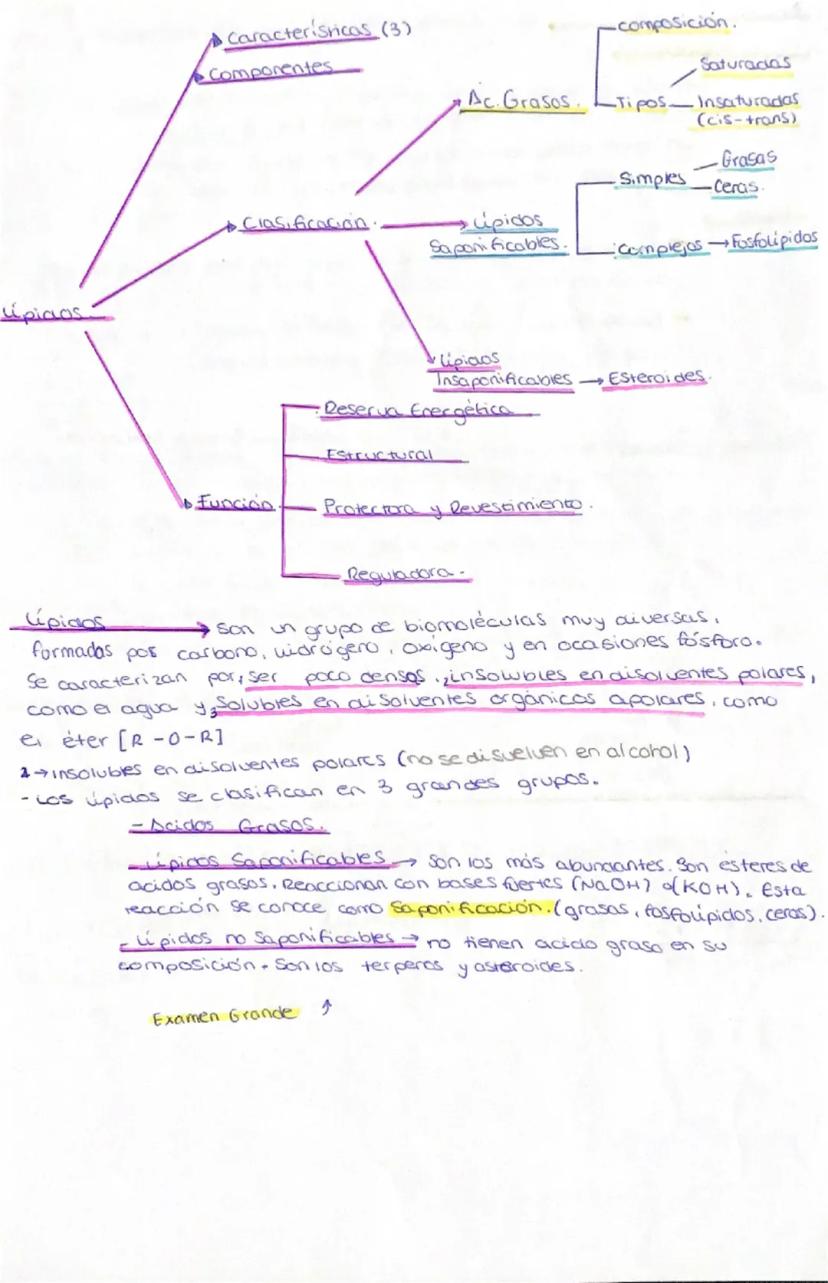 Características (3)
Componentes
Composición.
Ac. Grasos.
Tipos
Saturadas
Insaturadas
(cis-trans)
Clasificación.
Lípidos
Saponificables.
Simples
Grasas
Ceras.
Complejos → Fosfolípidos
Lípidos
Lípidos
Insaponificables → Esteroides.
Función.
Reserva Energética
Estructural
Protectora y Revestimiento.
Reguladora.
Lípidos → Son un grupo de biomoléculas muy diversas,
formadas pos carbono, hidrógeno, oxígeno y en ocasiones fósforo.
Se caracterizan por, ser poco densos, insolubles en disolventes polares,
como el agua y, solubles en disolventes orgánicos apolares, como
el éter [R-O-R]
1→ insolubles en disolventes polares (no se disuelven en alcohol)
- Los lípidos se clasifican en 3 grandes grupos.
- Acidos Grasos.
- Lípidos Saponificables → Son los más abundantes. Son esteres de
acidos grasos. Reaccionan con bases fuertes (NaOH) o (KOH). Esta
reacción se conoce como Saponificación. (grasas, fosfolípidos, ceras).
- Lípidos no Saponificables → no tienen acido graso en su
composición. Son los terpenos y asteroides.
Examen Grande ↑